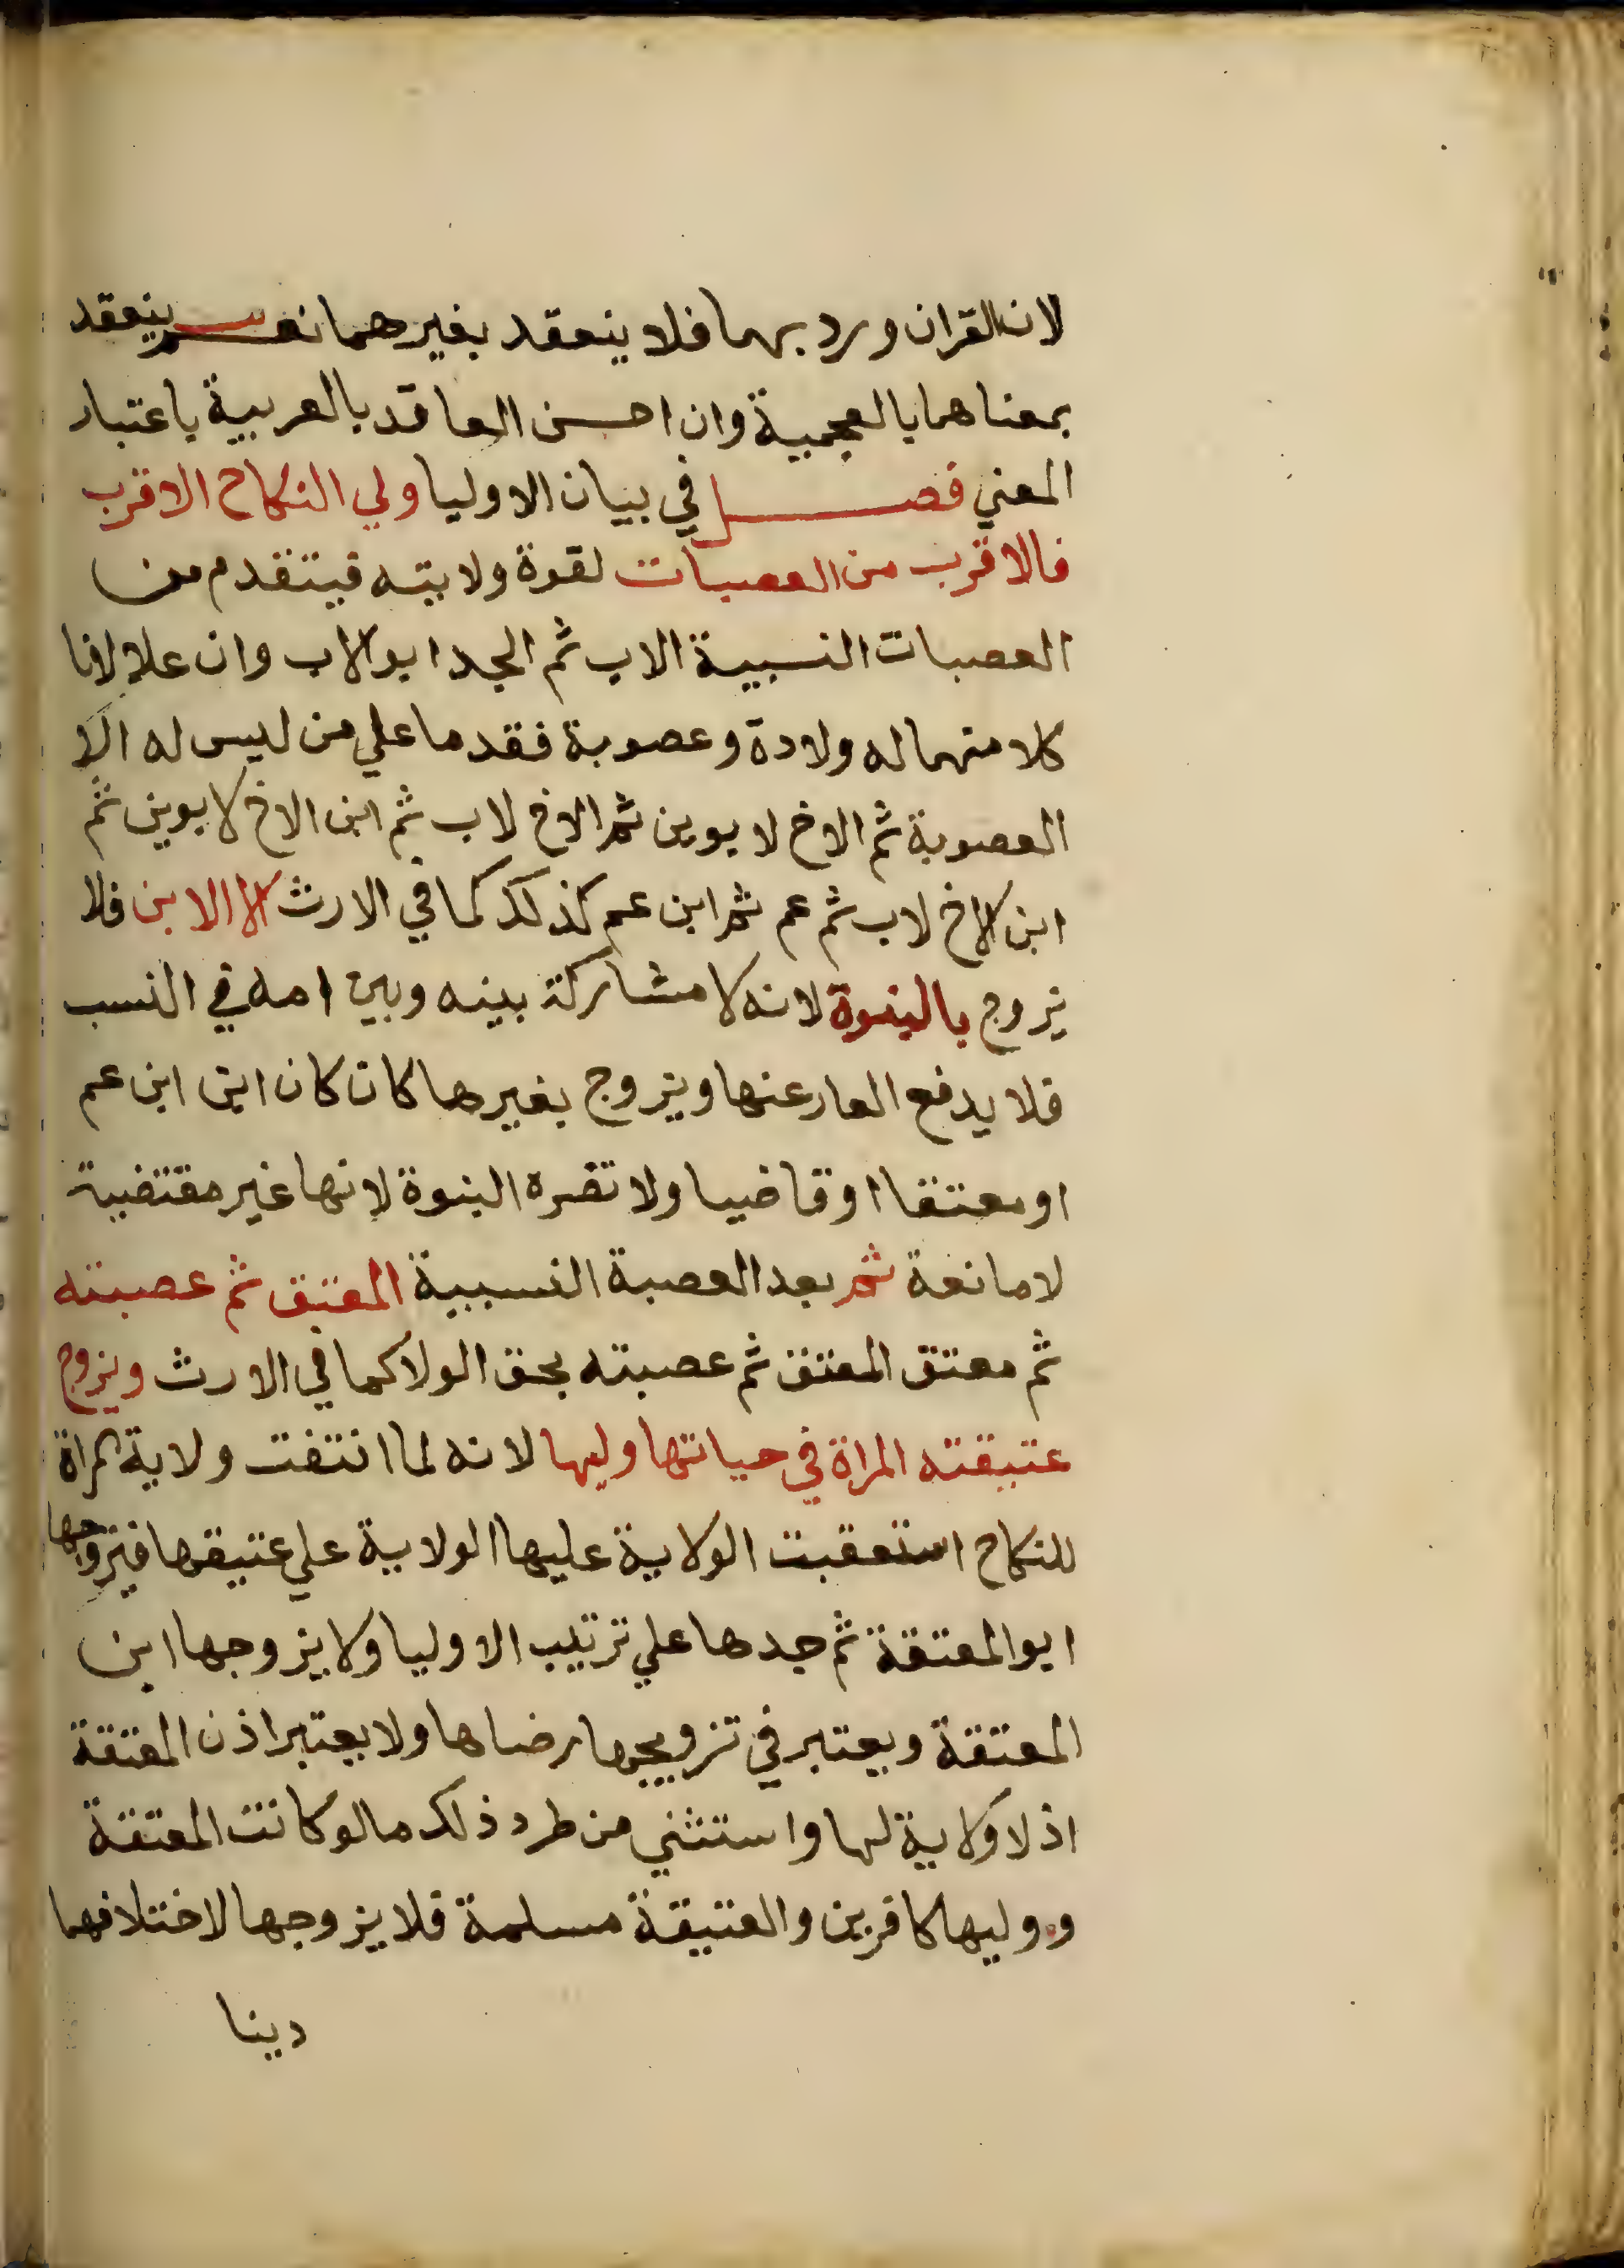 لان القران ورد بهما فلا ينعقد بغيرهما نعم ينعقد
بمعناهما بالعجمية وان احسن العاقد بالعربية باعتبار
المعني فصل في بيان الاوليا ولي النكاح الاقرب
فالاقرب من العصبات لقوة ولايته فيتقدم من
العصبات النسبية الاب ثم الجد ابو الاب وان علا لانا
كلا منهما له ولادة وعصوبة فقدما علي من ليس له الا
العصوبة ثم الاخ لابوين ثم الاخ لاب ثم ابن الاخ لابوين ثم
ابن الاخ لاب ثم عم ثم ابن عم كذلك كما في الارث الا الابن فلا
يزوج بالبنوة لانه لا مشاركة بينه وبين امه في النسب
فلا يدفع العار عنها ويزوج بغيرها كان كان ابن ابن عم
او معتقا او قاضيا ولا تضره البنوة لانها غير مقتضية
لا مانعة ثم بعد العصبة النسبية المعتق ثم عصبته
ثم معتق المعتق ثم عصبته بحق الولا كما في الارث ويزوج
عتيقته المراة في حياتها وليها لانه لما انتفت ولاية المراة
للنكاح استعقبت الولاية عليها الولاية علي عتيقها فيزوجها
ابو المعتقة ثم جدها علي ترتيب الاوليا ولا يزوجها ابن
المعتقة ويعتبر في تزويجها رضاها ولا يعتبر اذن المعتقة
اذ لا ولاية لها واستثني من طرد ذلك ما لو كانت المعتقة
ووليها كافرين والعتيقة مسلمة فلا يزوجها لاختلافهما
دينا